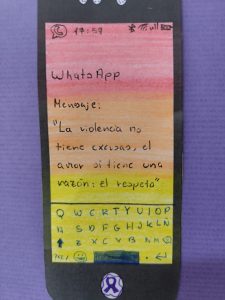 17:57
WhatsApp
Mensaje:
"La violencia no
tiene excusas, el
amor si tiene una
razón: el respeto"
Q W E R T Y U I O P
A S D F G H J K L Ñ
Z X C V B N M